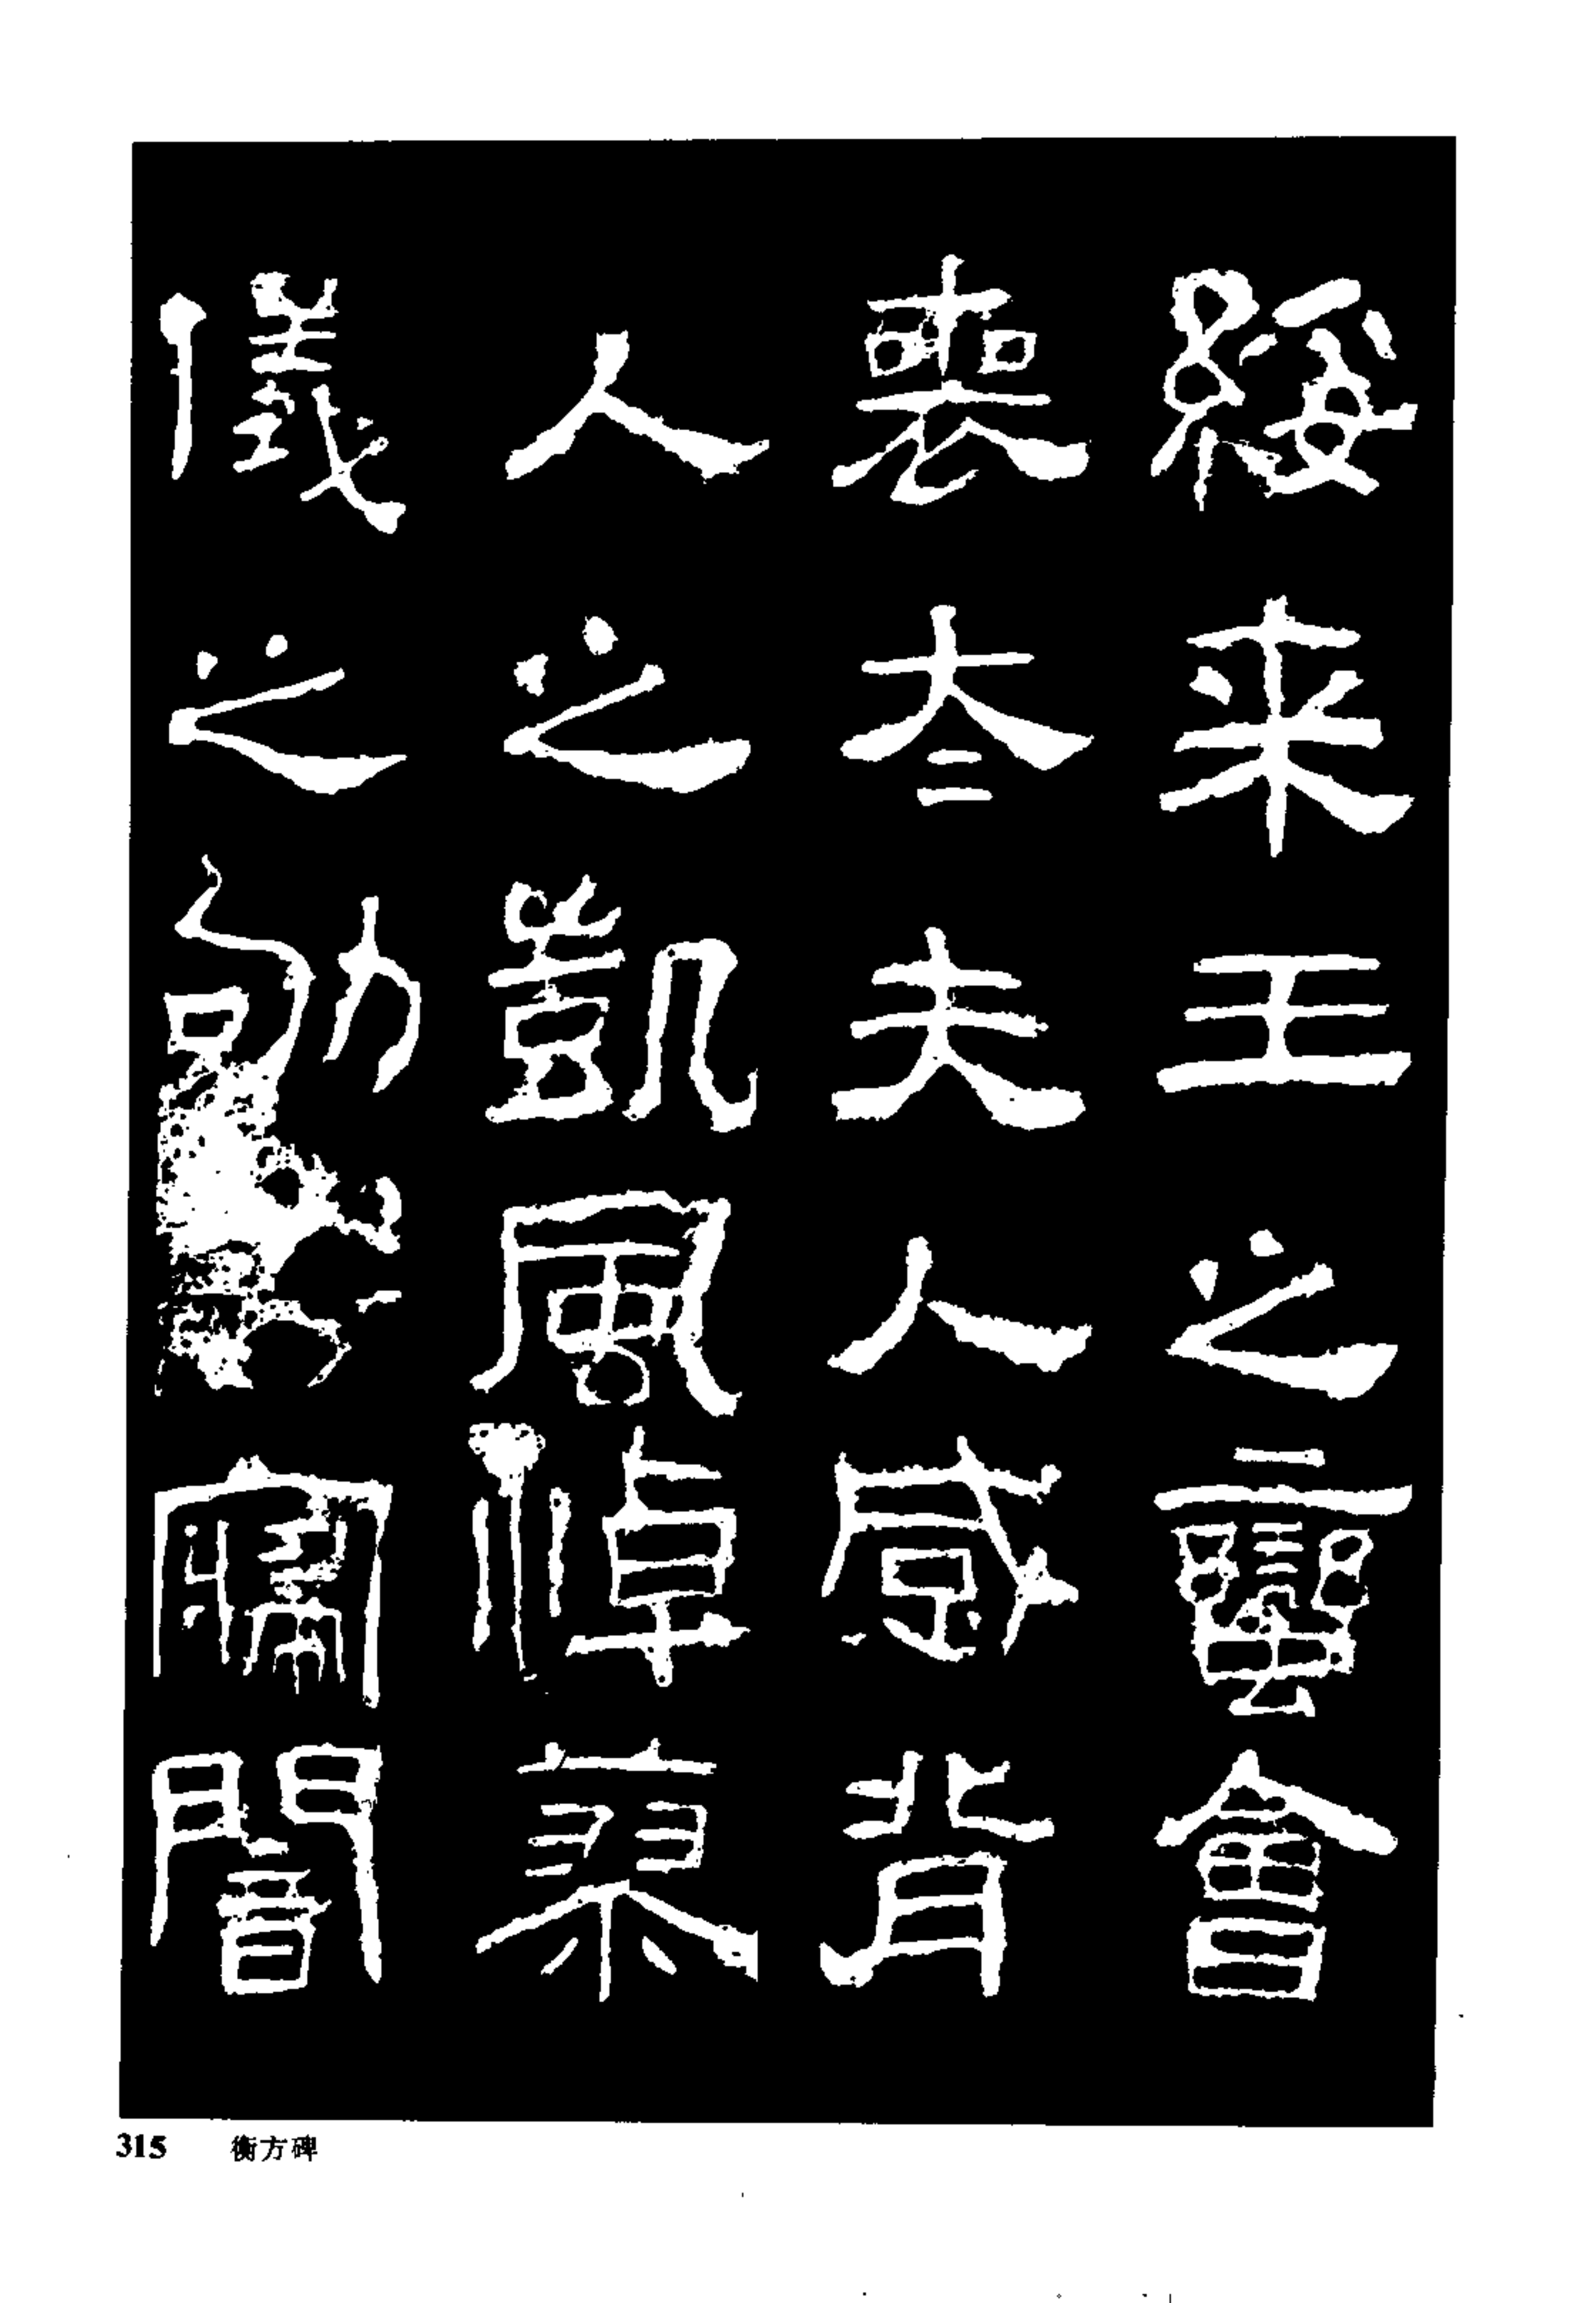 綏來王之蠻會
喪太夫人感背
人之凱風悼蓼
儀之劬勞寑闇
315 衡方碑